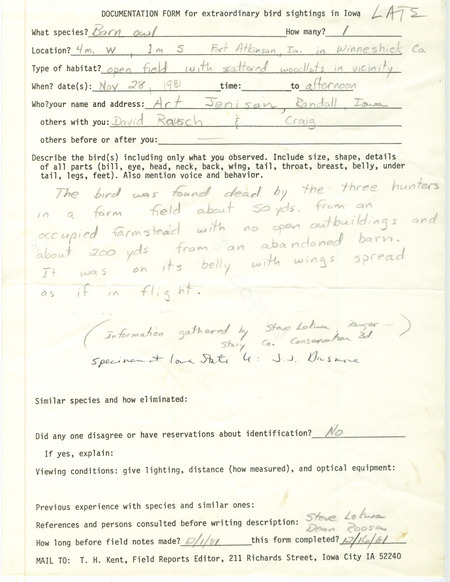 DOCUMENTATION FORM for extraordinary bird sightings in Iowa LATE
What species? Barn owl How many? 1
Location? 4m. W, 1m S Fort Atkinson, Ia. in Winneshiek Co.
Type of habitat? open field with scattered woodlots in vicinity
When? date(s): Nov 28, 1981 time: to afternoon
Who? your name and address: Art Jenison, Randall, Iowa
others with you: David Rausch & Craig
others before or after you:
Describe the bird(s) including only what you observed. Include size, shape, details
of all parts (bill, eye, head, neck, back, wing, tail, throat, breast, belly, under
tail, legs, feet). Also mention voice and behavior.
The bird was found dead by the three hunters
in a farm field about 50 yds. from an
occupied farmstead with no open outbuildings and
about 200 yds from an abandoned barn.
It was on its belly with wings spread
as if in flight.
(Information gathered by Steve Lekwa, Ranger —)
Story Co. Conservation Bd
Specimen at Iowa State U: J.J. Dinsmore
Similar species and how eliminated:
Did any one disagree or have reservations about identification? No
If yes, explain:
Viewing conditions: give lighting, distance (how measured), and optical equipment:
Previous experience with species and similar ones:
References and persons consulted before writing description: Steve Lekwa
Dean Roosa
How long before field notes made? 12/1/81 this form completed? 12/16/81
MAIL TO: T. H. Kent, Field Reports Editor, 211 Richards Street, Iowa City IA 52240